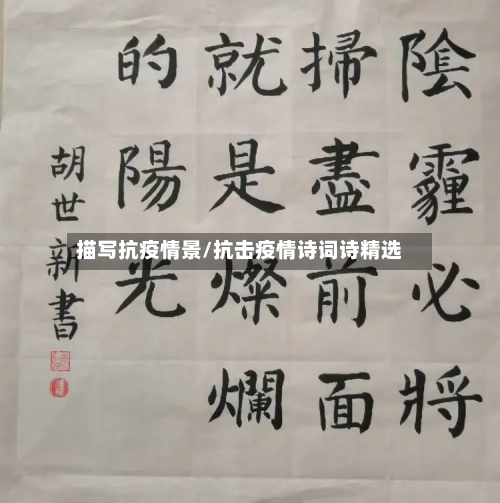 陰霾必將
掃盡前面
就是燦爛
的陽光
胡世新書
描写抗疫情景/抗击疫情诗词诗精选